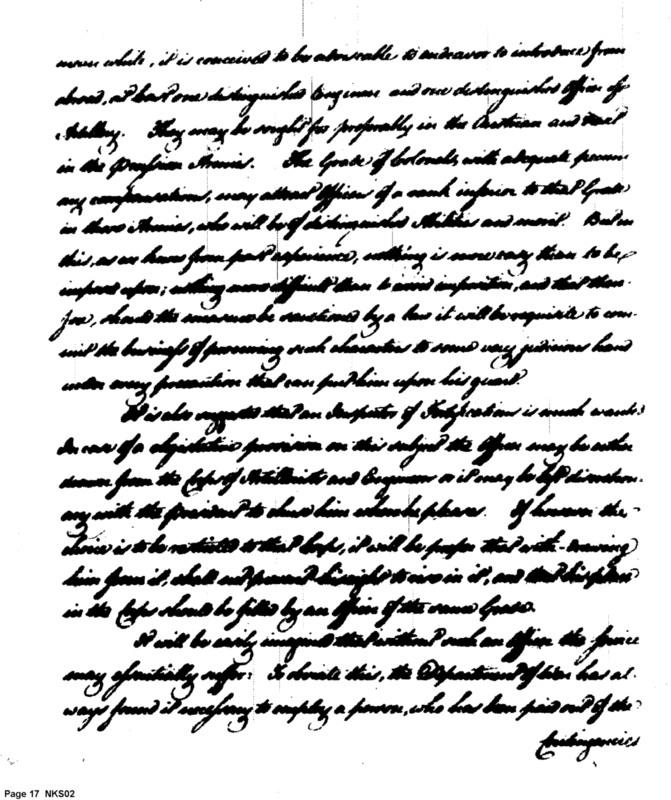 mean while, it is conceived to be adviseable to endeavor to introduce from
abroad, at least one distinguished Engineer and one distinguished Officer of
Artillery. They may be sought for preferably in the Austrian and next
in the Prussian Armies. The Grade of Colonels, with adequate pecuni-
ary compensations, may attract Officers of a rank inferior to that Grade
in those Armies, who will be of distinguished Abilities and merit. But in
this, as we know from past experience, nothing is more easy than to be
imposed upon; nothing more difficult than to avoid imposition, and that there-
fore, should the measure be sanctioned by a law it will be requisite to com-
mit the business of procuring such characters to some very judicious hand
under every precaution that can put him upon his guard.
It is also suggested that an Inspector of Fortifications is much wanted
In case of a legislative provision on this subject the Officer may be either
drawn from the Corps of Artillerists and Engineers or it may be left discretion-
ary with the President to chuse him where he pleases. If however the
choice is to be restricted to that Corps, it will be proper that with-drawing
him from it, shall not prevent his right to rise in it, and that his place
in the Corps should be filled by an Officer of the same Grade.
It will be easily imagined that without such an Officer the service
may essentially suffer: To obviate this, the Department of War has al-
ways found it necessary to employ a person, who has been paid out of the
Contingencies
Page 17 NKS02